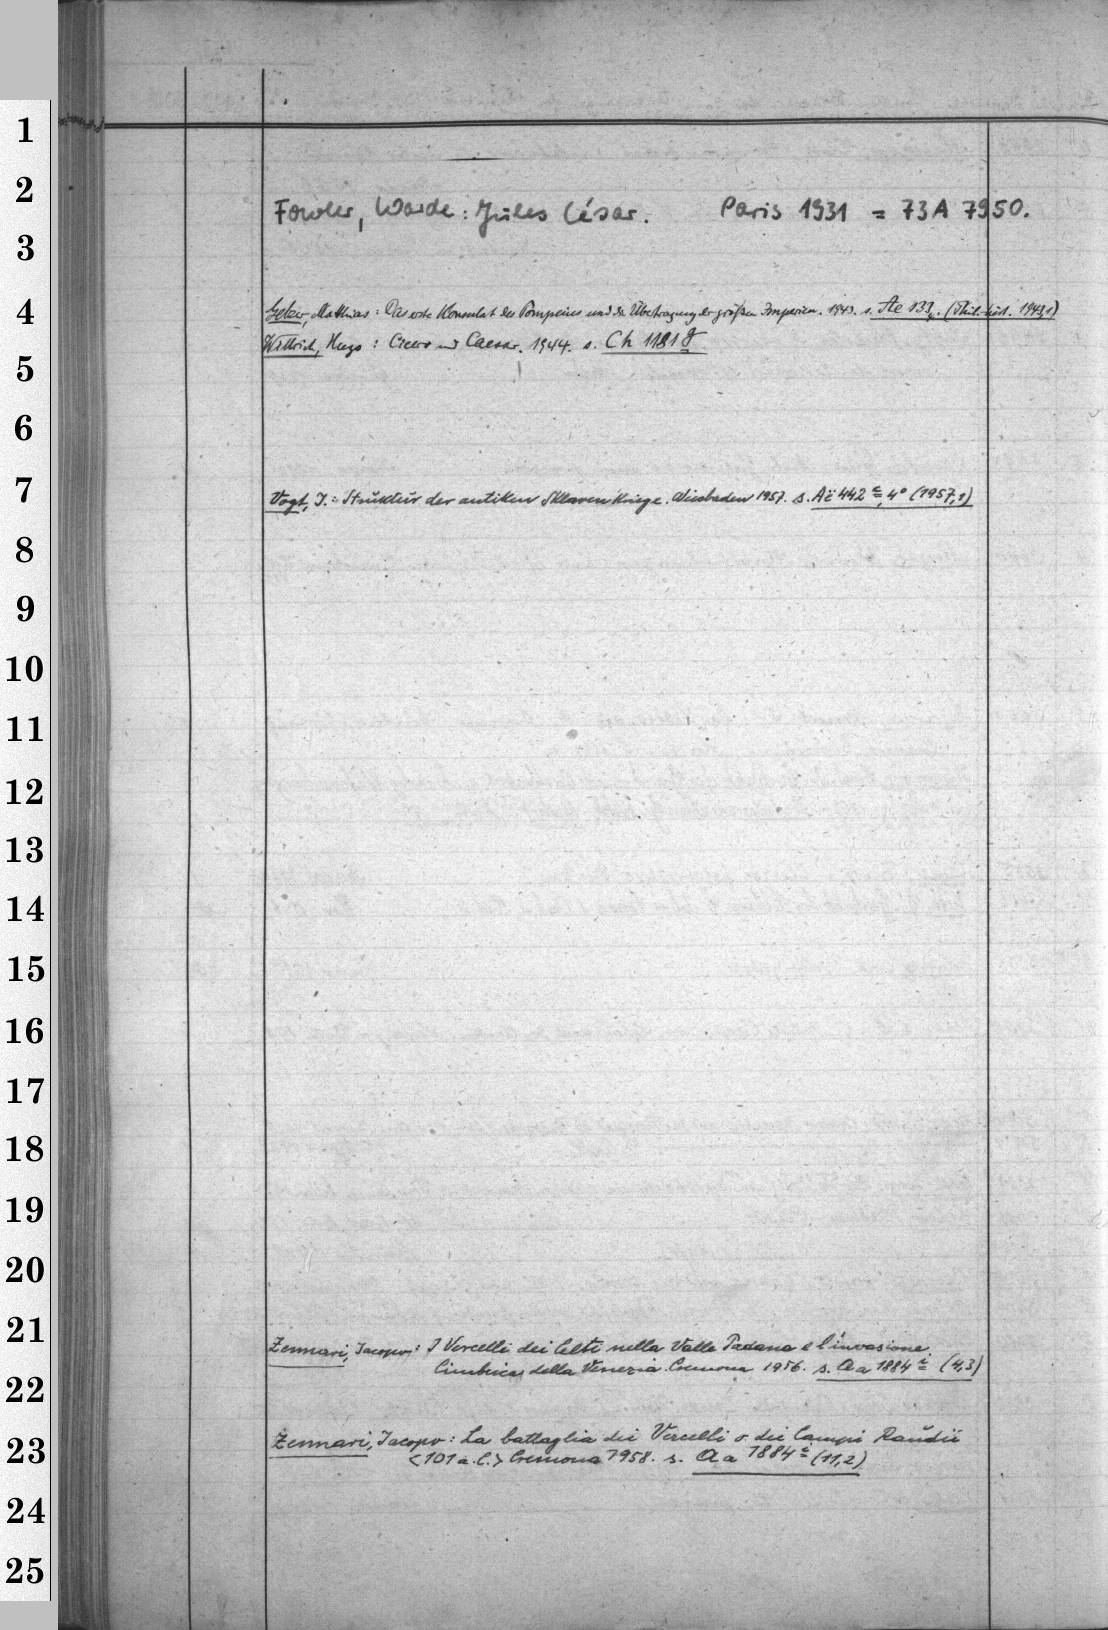 1
2
Fowler, Warde: Jules César. Paris 1931 = 73 A 7950.
3
4
Gelzer, Matthias: Das erste Konsulat des Pompeius und die Übertragung der großen Imperien. 1943. s. Ae 133, (Phil.-hist. 1943,1)
Willrich, Hugo: Cicero und Caesar. 1944. s. Ch 1181
5
6
7
Vogt, J.: Struktur der antiken Sklavenkriege. Wiesbaden 1957. s. Aë 442 4° (1957,1)
8
9
10
11
12
13
14
15
16
17
18
19
20
21
Zennari, Jacopo: I Vercelli dei Celti nella Valle Padana e l'invasione
Cimbrica della Venezia. Cremona 1956. s. Aa 1884 (4,3)
22
Zennari, Jacopo: La battaglia dei Vercelli o dei Campi Raudii
23
<101 a.C.> Cremona 1958. s. Aa 1884 (11,2)
24
25